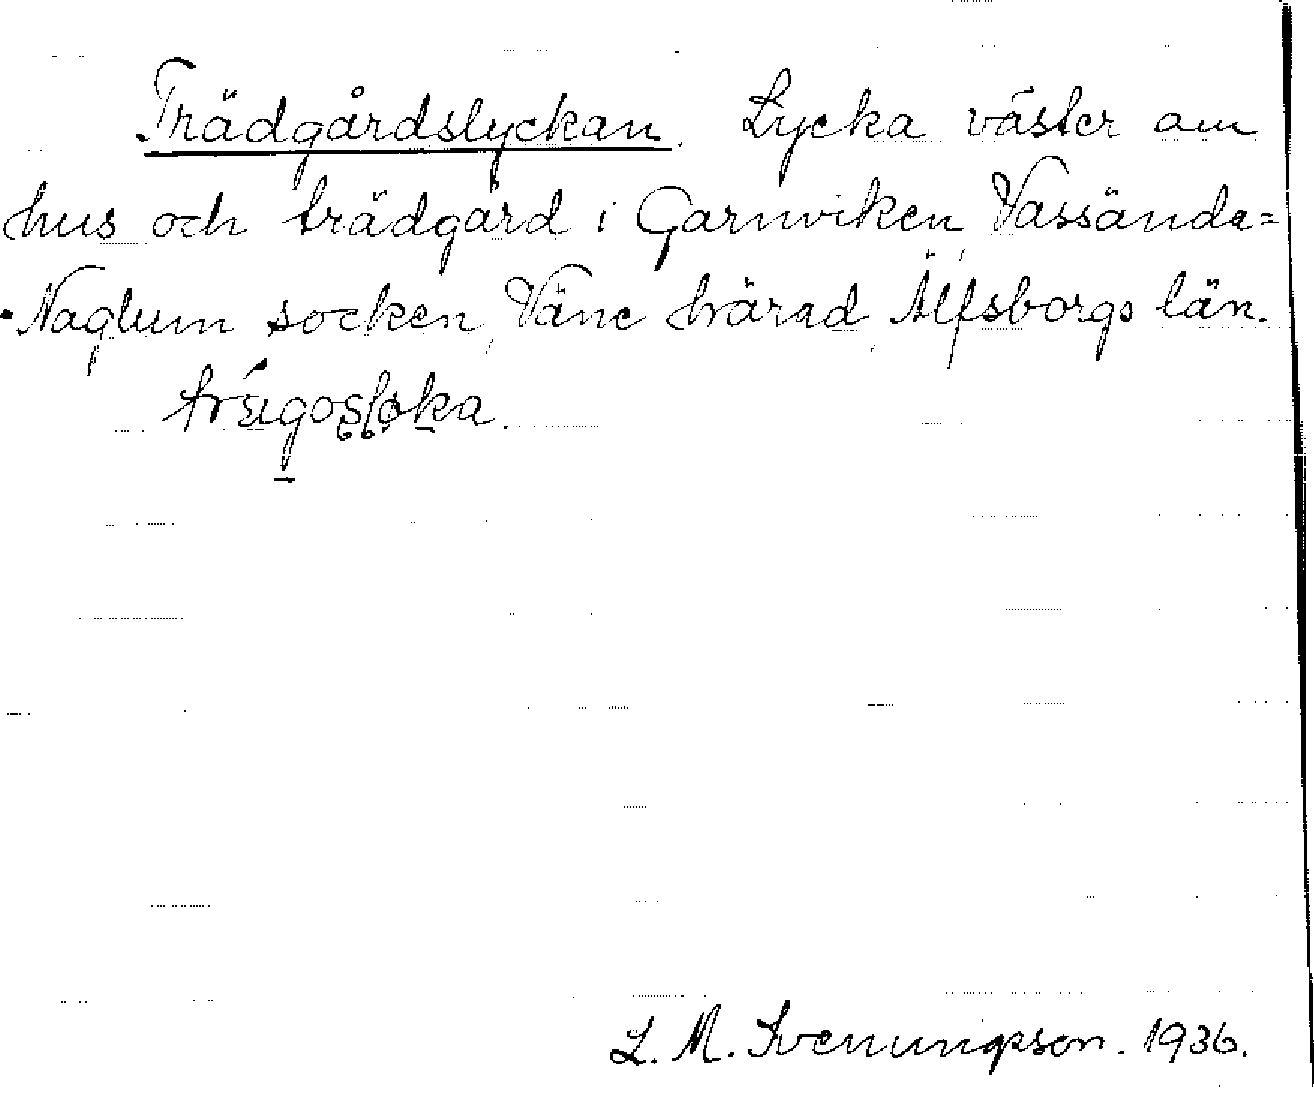 Trädgårdslyckan. Lycka väster om
hus och trädgård i Garnviken, Vassända=
-Naglum socken, Väne härad, Älfsborgs län.
L. M. Svenungsson. 1936.